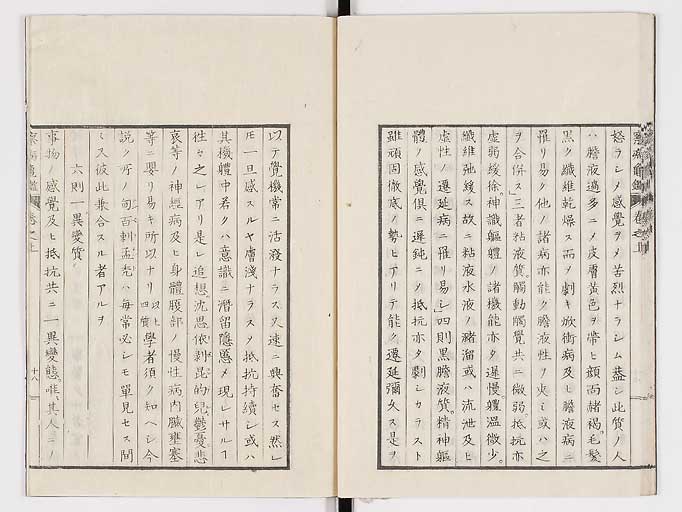 怒ラシメ感覺ヲメ苦烈ナラシム蓋シ此質ノ人
ハ膽液過多ニメ皮膚黃色ヲ帶ヒ顔面赭褐毛髮
黒ク纎維乾燥ス而ノ劇キ焮衝病及ヒ膽液病ニ
罹リ易ク他ノ諸病亦能ク膽液性ヲ夾ミ或ハ之
ヲ合併ス三者粘液質觸動觸覺共ニ微弱抵抗亦
虚弱緩徐神識軀體ノ諸機能亦タ遲慢體温微少
纎維弛緩ス故ニ粘液水液ノ瀦溜或ハ流泄及ヒ
虚性ノ遷延病ニ罹リ易シ四則黒膽液質精神軀
體ノ感覺倶ニ遲鈍ニノ抵抗亦タ劇シカラスト
雖頑固徹底ノ勢ヒアリテ能ク遷延彌久ス是ヲ
以テ覺機常ニ活潑ナラス又速ニ興奮セス然レ
𪜈一旦感スルヤ膚淺ナラスメ抵抗持續シ或ハ
其機體中若クハ意識ニ潛留隱慝メ現レサルヿ
往々之レアリ是レ追想沈思依剥昆的兒鬱憂悲
哀等ノ神經病及ヒ身體腹部ノ慢性病内臟壅塞
等ニ嬰リ易キ所以ナリ以上四質學者須ク知ヘシ今
説ク所ノ旬百剌孟先ハ毎常必シモ單見セス間
ミス彼此兼合スル者アルヲ
六則一異變質
事物ノ感覺及ヒ抵抗共ニ一異變態唯其人ニノ
十八